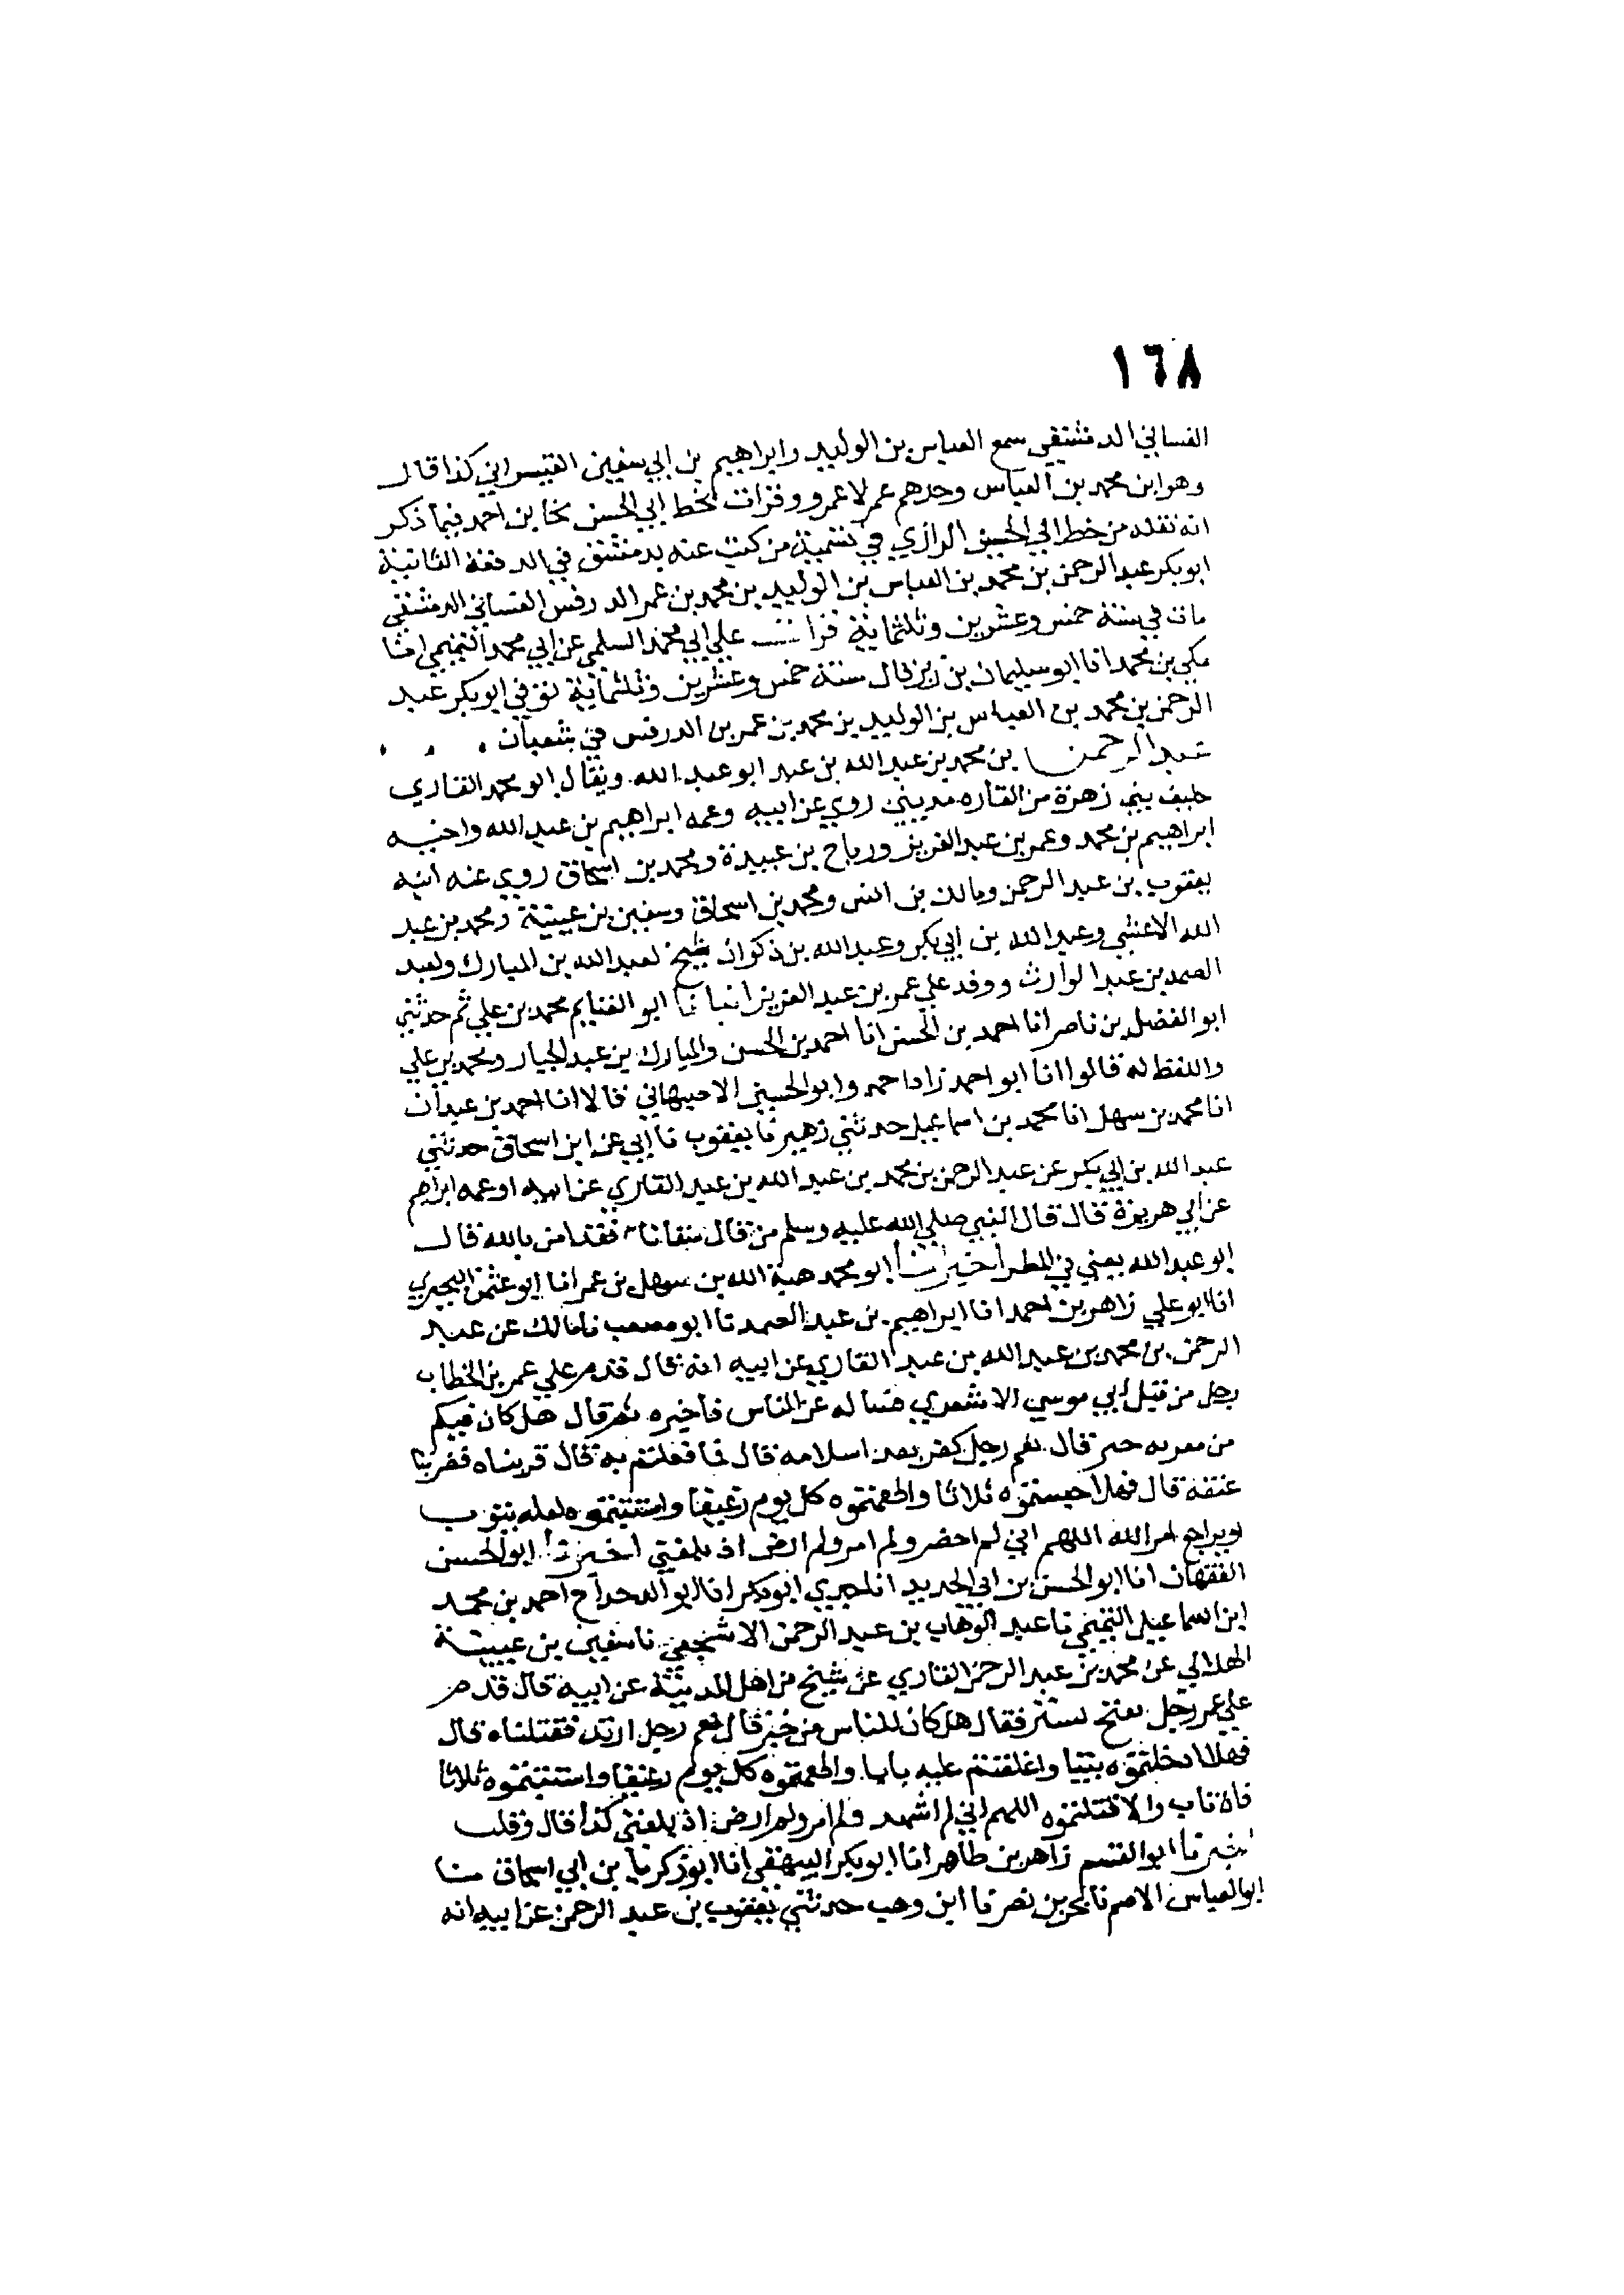 ١٦٨
الغساني الدمشقي سمع العباس بن الوليد وابراهيم بن ابي سفين القيسراني كذا قال
وهو ابن محمد بن العباس وجدهم عمر لا عمرو وقرات بخط ابي الحسن نجا بن احمد فيما ذكر
انه نقله من خط ابي الحسين الرازي في تسمية من كتب عنه بدمشق في الدفعة الثانية
ابو بكر عبد الرحمن بن محمد بن العباس بن الوليد بن محمد بن عمر الدرفس الغساني الدمشقي
مات في سنة خمس وعشرين وثلثماية قرات علي ابي محمد السلمي عن ابي محمد التميمي انا
مكي بن محمد انا ابو سليمان بن زبر قال سنة خمس وعشرين وثلثماية توفي ابو بكر عبد
الرحمن بن محمد بن العباس بن الوليد بن محمد بن عمر بن الدرفس في شعبان
عبد الرحمن بن محمد بن عبد الله بن عبد ابو عبد الله ويقال ابو محمد القاري
حليف بني زهرة من القاره مديني روي عن ابيه وعمه ابراهيم بن عبد الله واخيه
ابراهيم بن محمد وعمر بن عبد العزيز ورباح بن عبيدة ومحمد بن اسحاق روي عنه ابنه
يعقوب بن عبد الرحمن ومالك بن انس ومحمد بن اسحاق وسفين بن عيينة ومحمد بن عبد
الله الاعشي وعبد الله بن ابي بكر وعبد الله بن ذكوان شيخ لعبد الله بن المبارك ولعبد
الصمد بن عبد الوارث ووفد علي عمر بن عبد العزيز انبانا ابو الغنايم محمد بن علي ثم حدثني
ابو الفضل بن ناصر انا احمد بن الحسن انا احمد بن الحسن والمبارك بن عبد الجبار ومحمد بن علي
واللفظ له قالوا انا ابو احمد زاد احمد وابو الحسين الاصبهاني قالا انا احمد بن عبدان
انا محمد بن سهل انا محمد بن اسماعيل حدثني زهير نا يعقوب نا ابي عن ابن اسحاق حدثني
عبد الله بن ابي بكر عن عبد الرحمن بن محمد بن عبد الله بن عبد القاري عن ابيه او عمه ابراهيم
عن ابي هريرة قال قال النبي صلي الله عليه وسلم من قال سقانا فقد امن بالله قال
ابو عبد الله يعني في المطر اخبرنا ابو محمد هبة الله بن سهل بن عمر انا ابو عثمن البحيري
انا ابو علي زاهر بن احمد انا ابراهيم بن عبد الصمد نا ابو مصعب نا مالك عن عبد
الرحمن بن محمد بن عبد الله بن عبد القاري عن ابيه انه قال قدم علي عمر بن الخطاب
رجل من قبل ابي موسي الاشعري فساله عن الناس فاخبره ثم قال هل كان فيكم
من خبر قال نعم رجل كفر بعد اسلامه قال فما فعلتم به قال قربناه فضربنا
عنقه قال فهلا حبستموه ثلاثا واطعمتموه كل يوم رغيفا واستتبتموه لعله يتوب
او يراجع امر الله اللهم اني لم احضر ولم امر ولم ارض اذ بلغني اخبرنا ابو الحسن
الفقيهان انا ابو الحسن بن ابي الحديد انا جدي ابو بكر انا ابو الدحداح احمد بن محمد
ابن اسماعيل التميمي نا عبد الوهاب بن عبد الرحمن الاشجعي نا سفين بن عيينة
الهلالي عن محمد بن عبد الرحمن القاري عن شيخ من اهل المدينة عن ابيه قال قدم
علي عمر رجل بفتح تستر فقال هل كان للناس من خبر قال نعم رجل ارتد فقتلناه قال
فهلا ادخلتموه بيتا واغلقتم عليه بابا واطعمتموه كل يوم رغيفا واستتبتموه ثلاثا
فان تاب والا قتلتموه اللهم اني لم اشهد ولم امر ولم ارض اذ بلغني كذا قال وقلب
اخبرنا ابو القسم زاهر بن طاهر انا ابو بكر البيهقي انا ابو زكريا بن ابي اسحاق نا
ابو العباس الاصم نا بحر بن نصر نا ابن وهب حدثني يعقوب بن عبد الرحمن عن ابيه انه